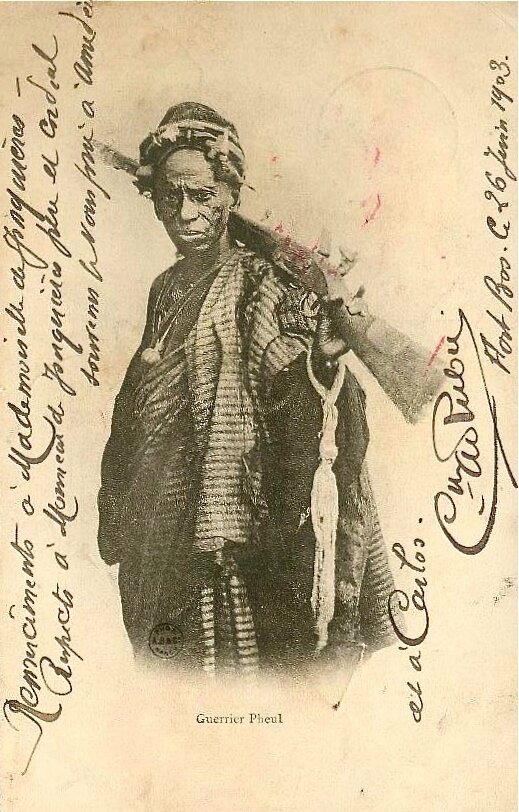 Remerciments à Mademoiselle de Jonquières –
Respects à Monsieur de Jonquières père et cordial
souvenir
à Amédée
et à Carlos.
Port Bou. Le 26 Juin 1903.
Guerrier Pheul